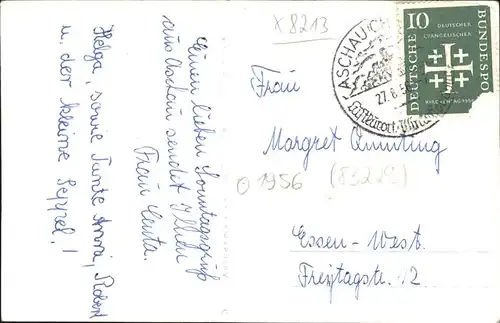 Einen lieben Sonntagsgruß
aus Aschau sendet Ihnen
Frau Centa.
Helga, sowie Tante Anna, Robert
u. der kleine Seppel!
x 8213
ASCHAU
27.8.5
Luftkurort
10
DEUTSCHE
BUNDESPO
DEUTSCHER
EVANGELISCHER
KIRCHENTAG 1956
Frau
Margret
O 1956
Essen-West.
Freytagstr. 12